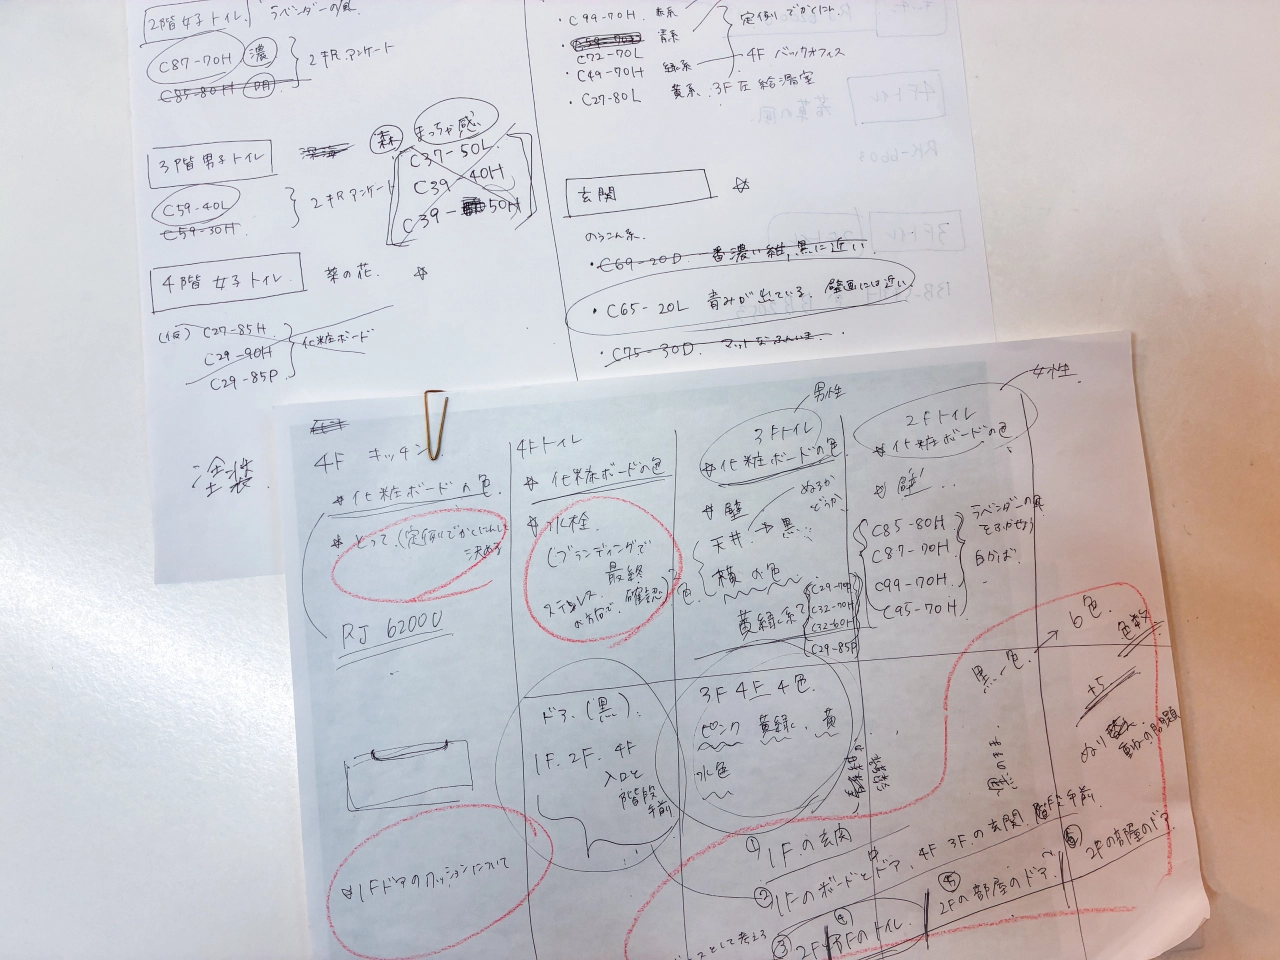 2階女子トイレ
ラベンダーの風
C87-70H 濃
C85-80H 明
2択アンケート
3階男子トイレ
深海
森
まっちゃ感
C59-40L
C59-30H
2択アンケート
C37-50L
C39-40H
C39-50H
4階 女子トイレ
菜の花
(仮) C27-85H
C29-90H
C29-85P
化粧ボード
・C99-70H
定例でかくにん
C72-70L 青系
・C49-70H 緑系
4F バックオフィス
・C27-80L 黄系 3F 左 給湯室
玄関
のうこん系
・C69-20D 一番濃い紺, 黒に近い
・C65-20L 青みが出ている。壁画には近い
・C75-30D. マットなふんいき
塗装
4F キッチン
化粧ボードの色
とって (定例でかくにんし
決める
RJ 6200U
4Fトイレ
化粧ボードの色
水栓
(ブランディングで
最終
確認)
男性
3Fトイレ
化粧ボードの色
壁
ぬるか
どうか
天井 黒
横の色
黄緑系?
C29-70H
C32-70H
C32-60H
C29-85P
女性
2Fトイレ
化粧ボードの色
壁
C85-80H
C87-70H
C99-70H
C95-70H
ラベンダーの風
白かば
ドア (黒)
1F. 2F. 4F
入口と
階段
手前
3F 4F 4色
ピンク 黄緑 黄
水色
黒一色
6色
色数
+5
1Fドアのクッションについて
① 1F の玄関
② 1Fのボードとドア、4F 3F の玄関、階段手前
③ 2F
④ 3Fのトイレ
⑤ 2Fの部屋のドア
⑥ 2Fの部屋のドア
として考える